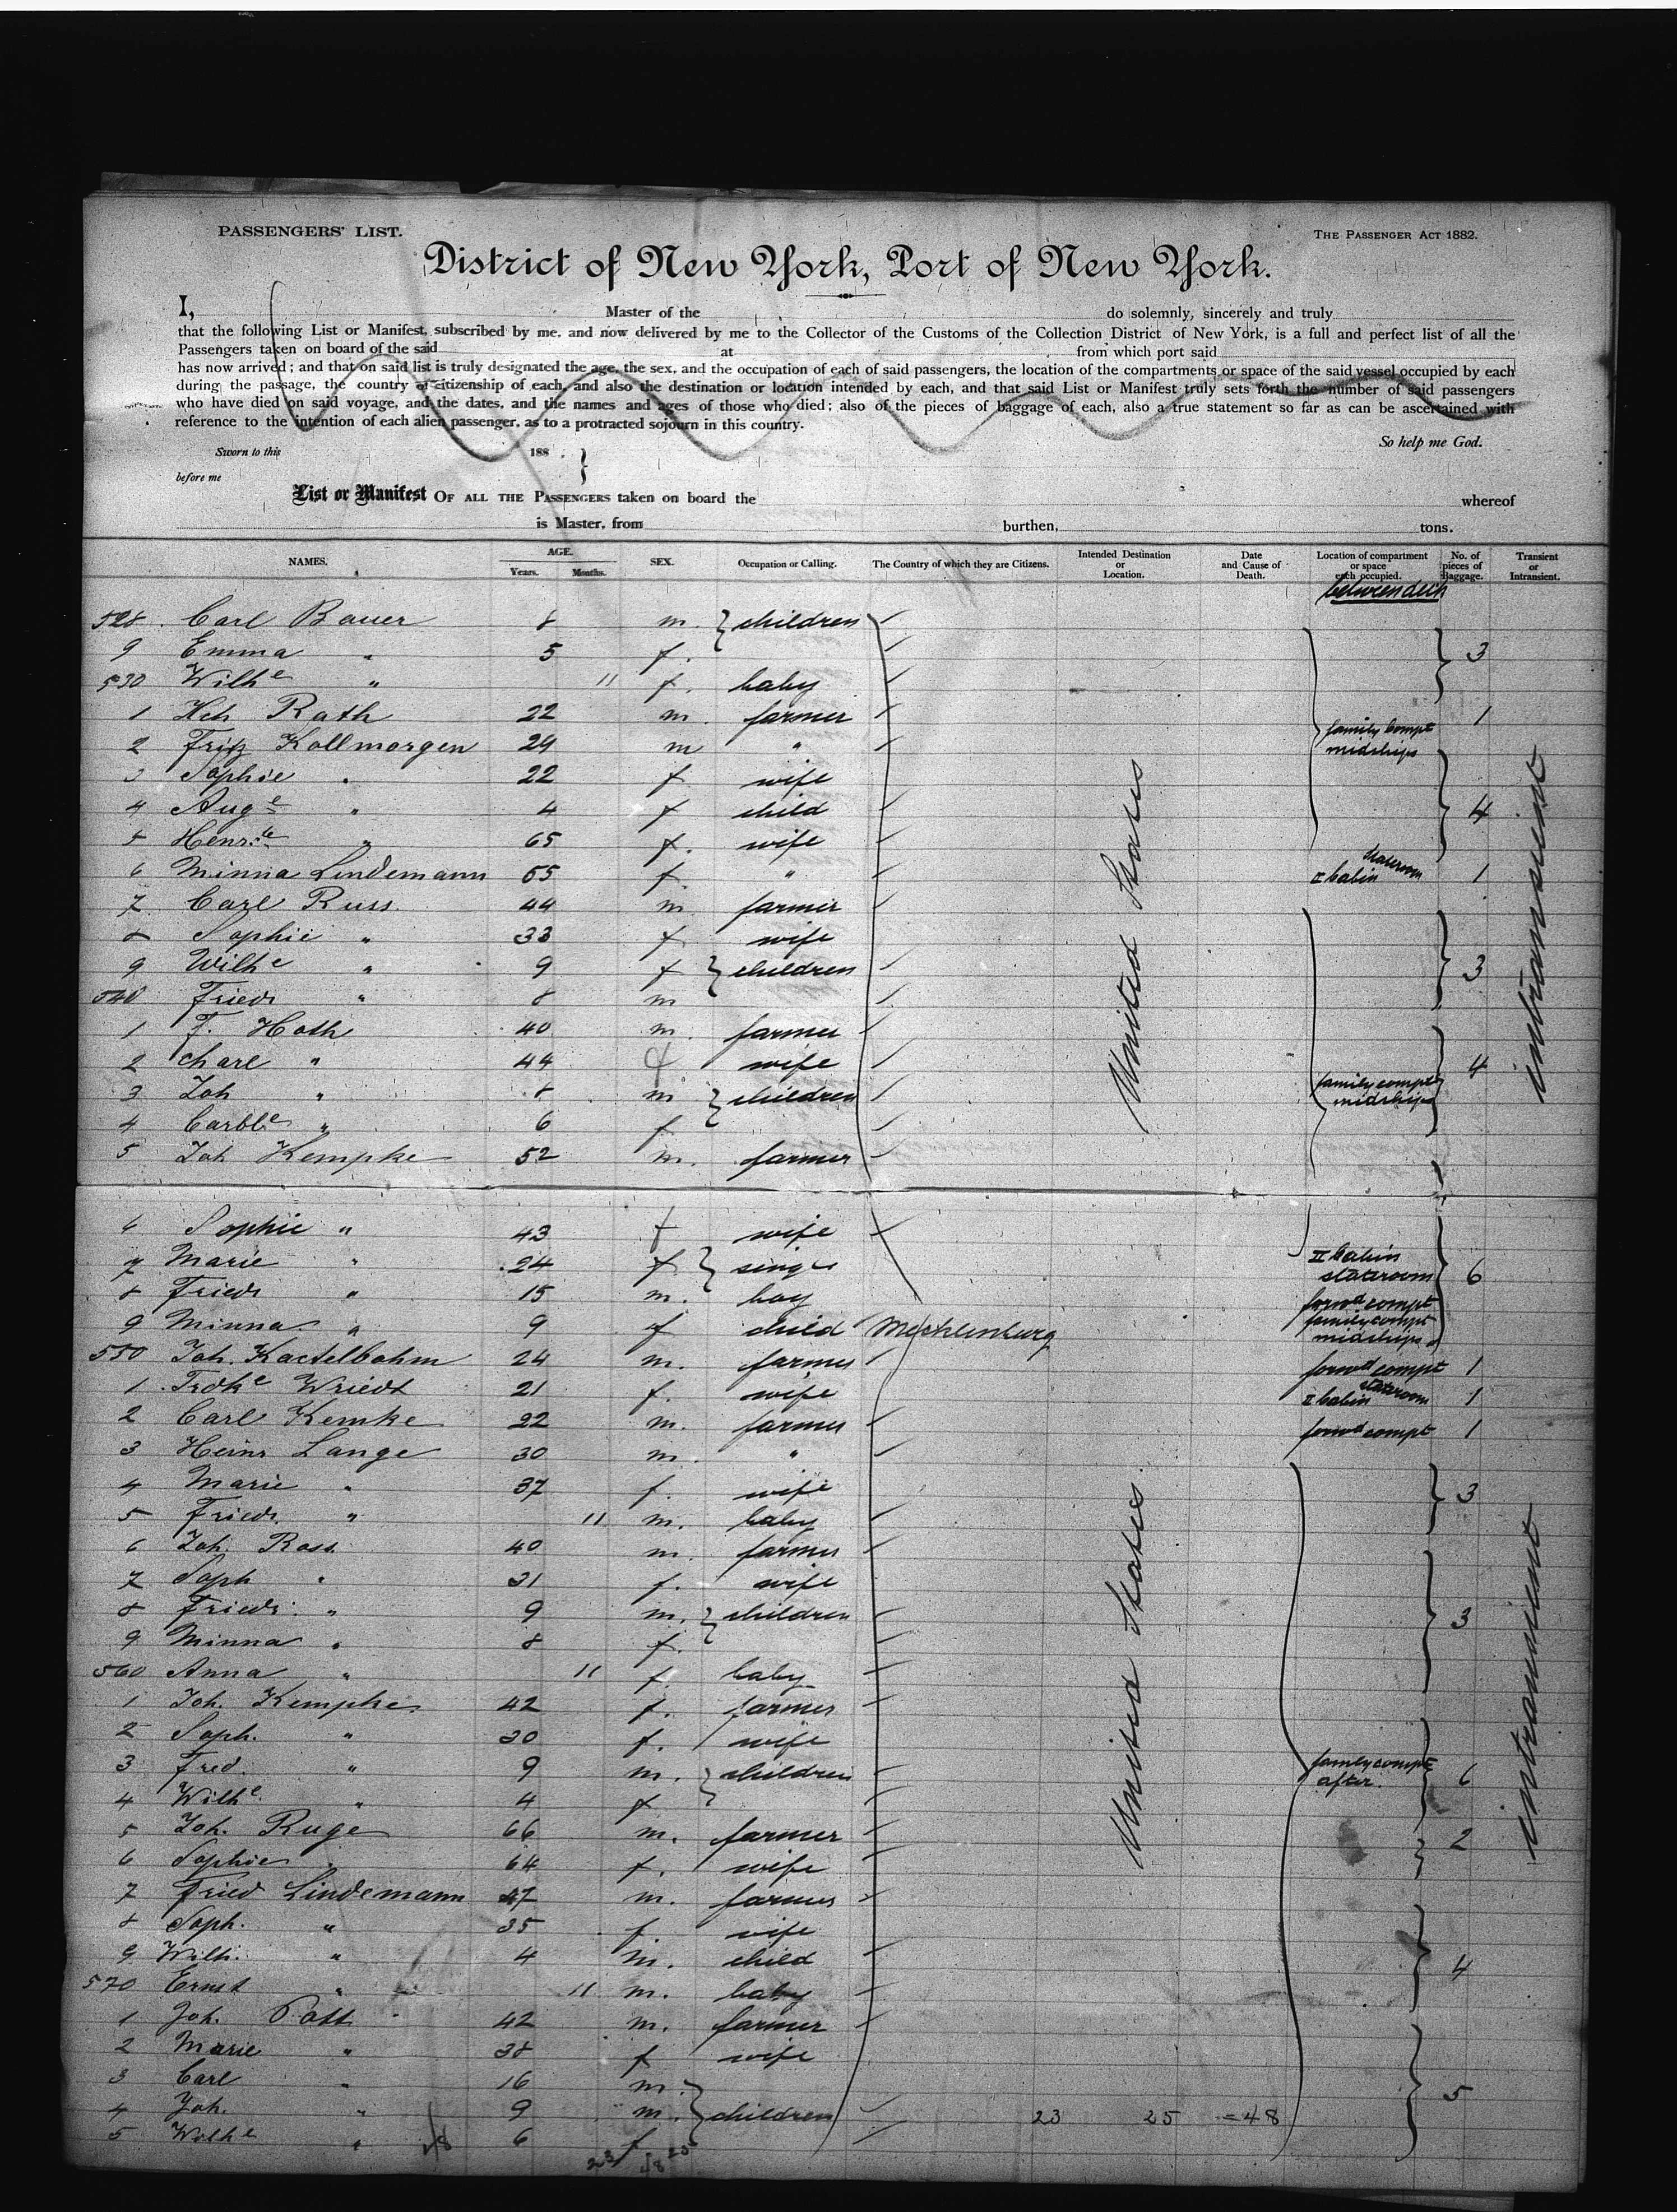 PASSENGERS' LIST.
THE PASSENGER ACT 1882.
District of New York, Port of New York.
I, Master of the do solemnly, sincerely and truly
that the following List or Manifest, subscribed by me, and now delivered by me to the Collector of the Customs of the Collection District of New York, is a full and perfect list of all the
Passengers taken on board of the said at from which port said
has now arrived; and that on said list is truly designated the age, the sex, and the occupation of each of said passengers, the location of the compartments or space of the said vessel occupied by each
during the passage, the country of citizenship of each, and also the destination or location intended by each, and that said List or Manifest truly sets forth the number of said passengers
who have died on said voyage, and the dates, and the names and ages of those who died; also of the pieces of baggage of each, also a true statement so far as can be ascertained with
reference to the intention of each alien passenger, as to a protracted sojourn in this country.
So help me God.
Sworn to this 188 .
before me
List or Manifest OF ALL THE PASSENGERS taken on board the whereof
is Master, from burthen, tons.
NAMES. AGE. Years. Months. SEX. Occupation or Calling. The Country of which they are Citizens. Intended Destination or Location. Date and Cause of Death. Location of compartment or space each occupied. No. of pieces of Baggage. Transient or Intransient.
528 Carl Bauer 8 m. children
9 Emma " 5 f. 3
530 Wilhe " 11 f. baby
1 Hch Rath 22 m. farmer 1
2 Fritz Kollmorgen 24 m " family compt midships
3 Sophie " 22 f wife
4 Auge " 4 f child 4
5 Henrtte " 65 f. wife
6 Minna Lindemann 55 f. " II Cabin stateroom 1
7 Carl Russ 44 m farmer
8 Sophie " 33 f wife
9 Wilhe " 9 f children 3
540 Friedr " 8 m
1 F. Hoth 40 m. farmer
2 Charl " 44 f wife 4
3 Joh " 8 m children family compt midships
4 " 6 f
5 Joh Kempke 52 m. farmer
United States
intransient
6 Sophie " 43 f wife
7 Marie " 24 f single II Cabin stateroom 6
8 Friedr " 15 m. boy forwd compt
9 Minna " 9 f child Mecklenburg family compt midships
550 Joh. Kactelbohm 24 m. farmer forwd compt 1
1 Wriedt 21 f. wife II Cabin stateroom 1
2 Carl Kemke 22 m. farmer forwd compt 1
3 Heinr Lange 30 m. "
4 Marie " 37 f. wife 3
5 Friedr. " 11 m. baby
6 Joh. Ross 40 m. farmer
7 Soph " 31 f. wife
8 Friedr. " 9 m. children 3
9 Minna " 8 f.
560 Anna " 11 f. baby
1 Joh. Kempke 42 f. farmer
2 Soph. " 30 f. wife
3 Fred. " 9 m. children family compt after. 6
4 Wilhe " 4 f
5 Joh. Ruge 66 m. farmer 2
6 Sophie 64 f. wife
7 Fried Lindemann 47 m. farmer
8 Soph. " 35 f. wife
9 Wilh. " 4 m. child 4
570 Ernst " 11 m. baby
1 Joh. Patt 42 m. farmer
2 Marie " 38 f wife
3 Carl " 16 m. 5
4 Joh. " 9 m. children 23 25 =48
5 Wilhe " 6 f
United States
intransient
48 23 48 25